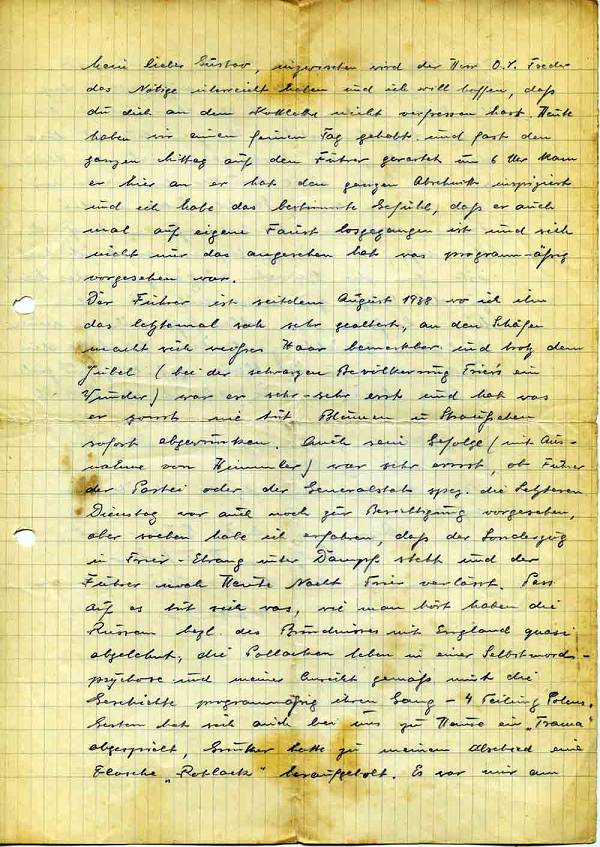 Mein lieber Gustav, inzwischen wird der Herr O.V.
das Nötige übereicht haben und ich will hoffen, daß
du dich an dem nicht verfressen hast. Heute
haben wir einen feinen Tag gehabt und fast den
ganzen Mittag auf den Führer gewartet um 6 Uhr kam
er hier an er hat den ganzen Abschnitt inspiziert
und ich habe das bestimmte Gefühl, daß er auch
mal auf eigene Faust losgegangen ist und sich
nicht nur das angesehen hat was programmäßig
vorgesehen war.
Der Führer ist seitdem August 1938 wo ich ihn
das letztemal sah sehr gealtert, an den Schläfen
macht sich weißes Haar bemerkbar und trotz dem
Jubel (bei der schwarzen Bevölkerung Triers ein
Wunder) war er sehr-sehr ernst und hat was
er sonst nie tut Blumen u Sträußchen
sofort abgewunken. Auch sein Gefolge (mit Aus-
nahme von Himmler) war sehr ernst, ob Führer
der Partei oder der Generalstab spez. die Letzteren
Dienstag war auch noch zur Besichtigung vorgesehen,
aber soeben habe ich erfahren, daß der Sonderzug
in Trier-Ehrang unter Dampf steht und der
Führer noch Heute Nacht Trier verlässt. Pass
auf es tut sich was, wie man hört haben die
Russen bezl. des Bündnisses mit England quasi
abgelehnt, die Pollacken leben in einer Selbstmord-
psychose und meiner Ansicht gemäß wird die
Geschichte programmäßig ihren Gang - 4 Teilung Polens.
Gestern hat sich auch bei uns zu Hause ein „Drama"
abgespielt, hatte zu meinem Abschied eine
Flasche „Rotlack" heraufgeholt. Es war mir am